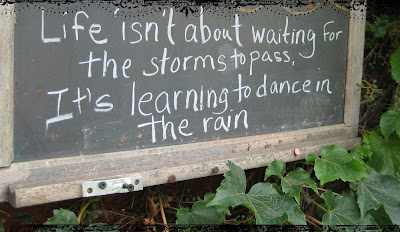 Life isn't about waiting for
the storms to pass,
It's learning to dance in
the rain